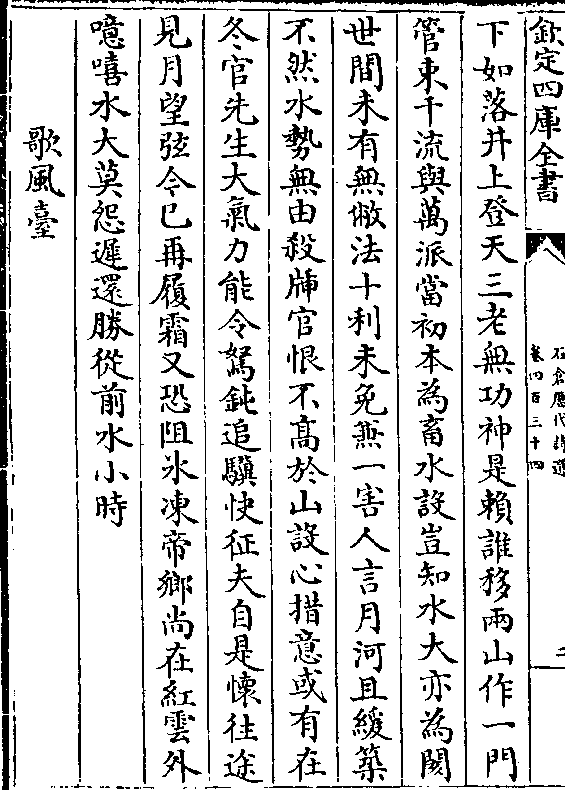 欽定四庫全書
石倉歷代詩選
卷四百三十四
二
下如落井上登天三老無功神是賴誰移兩山作一門
管束千流與萬派當初本為畜水設豈知水大亦為閡
世間未有無僘法十利未免兼一害人言月河且緩築
不然水勢無由殺牐官恨不髙於山設心措意或有在
冬官先生大氣力能令駑鈍追驥快征夫自是懐往途
見月望弦今已再履霜又恐阻氷凍帝鄉尚在紅雲外
噫嘻水大莫怨遲還勝從前水小時
歌風臺